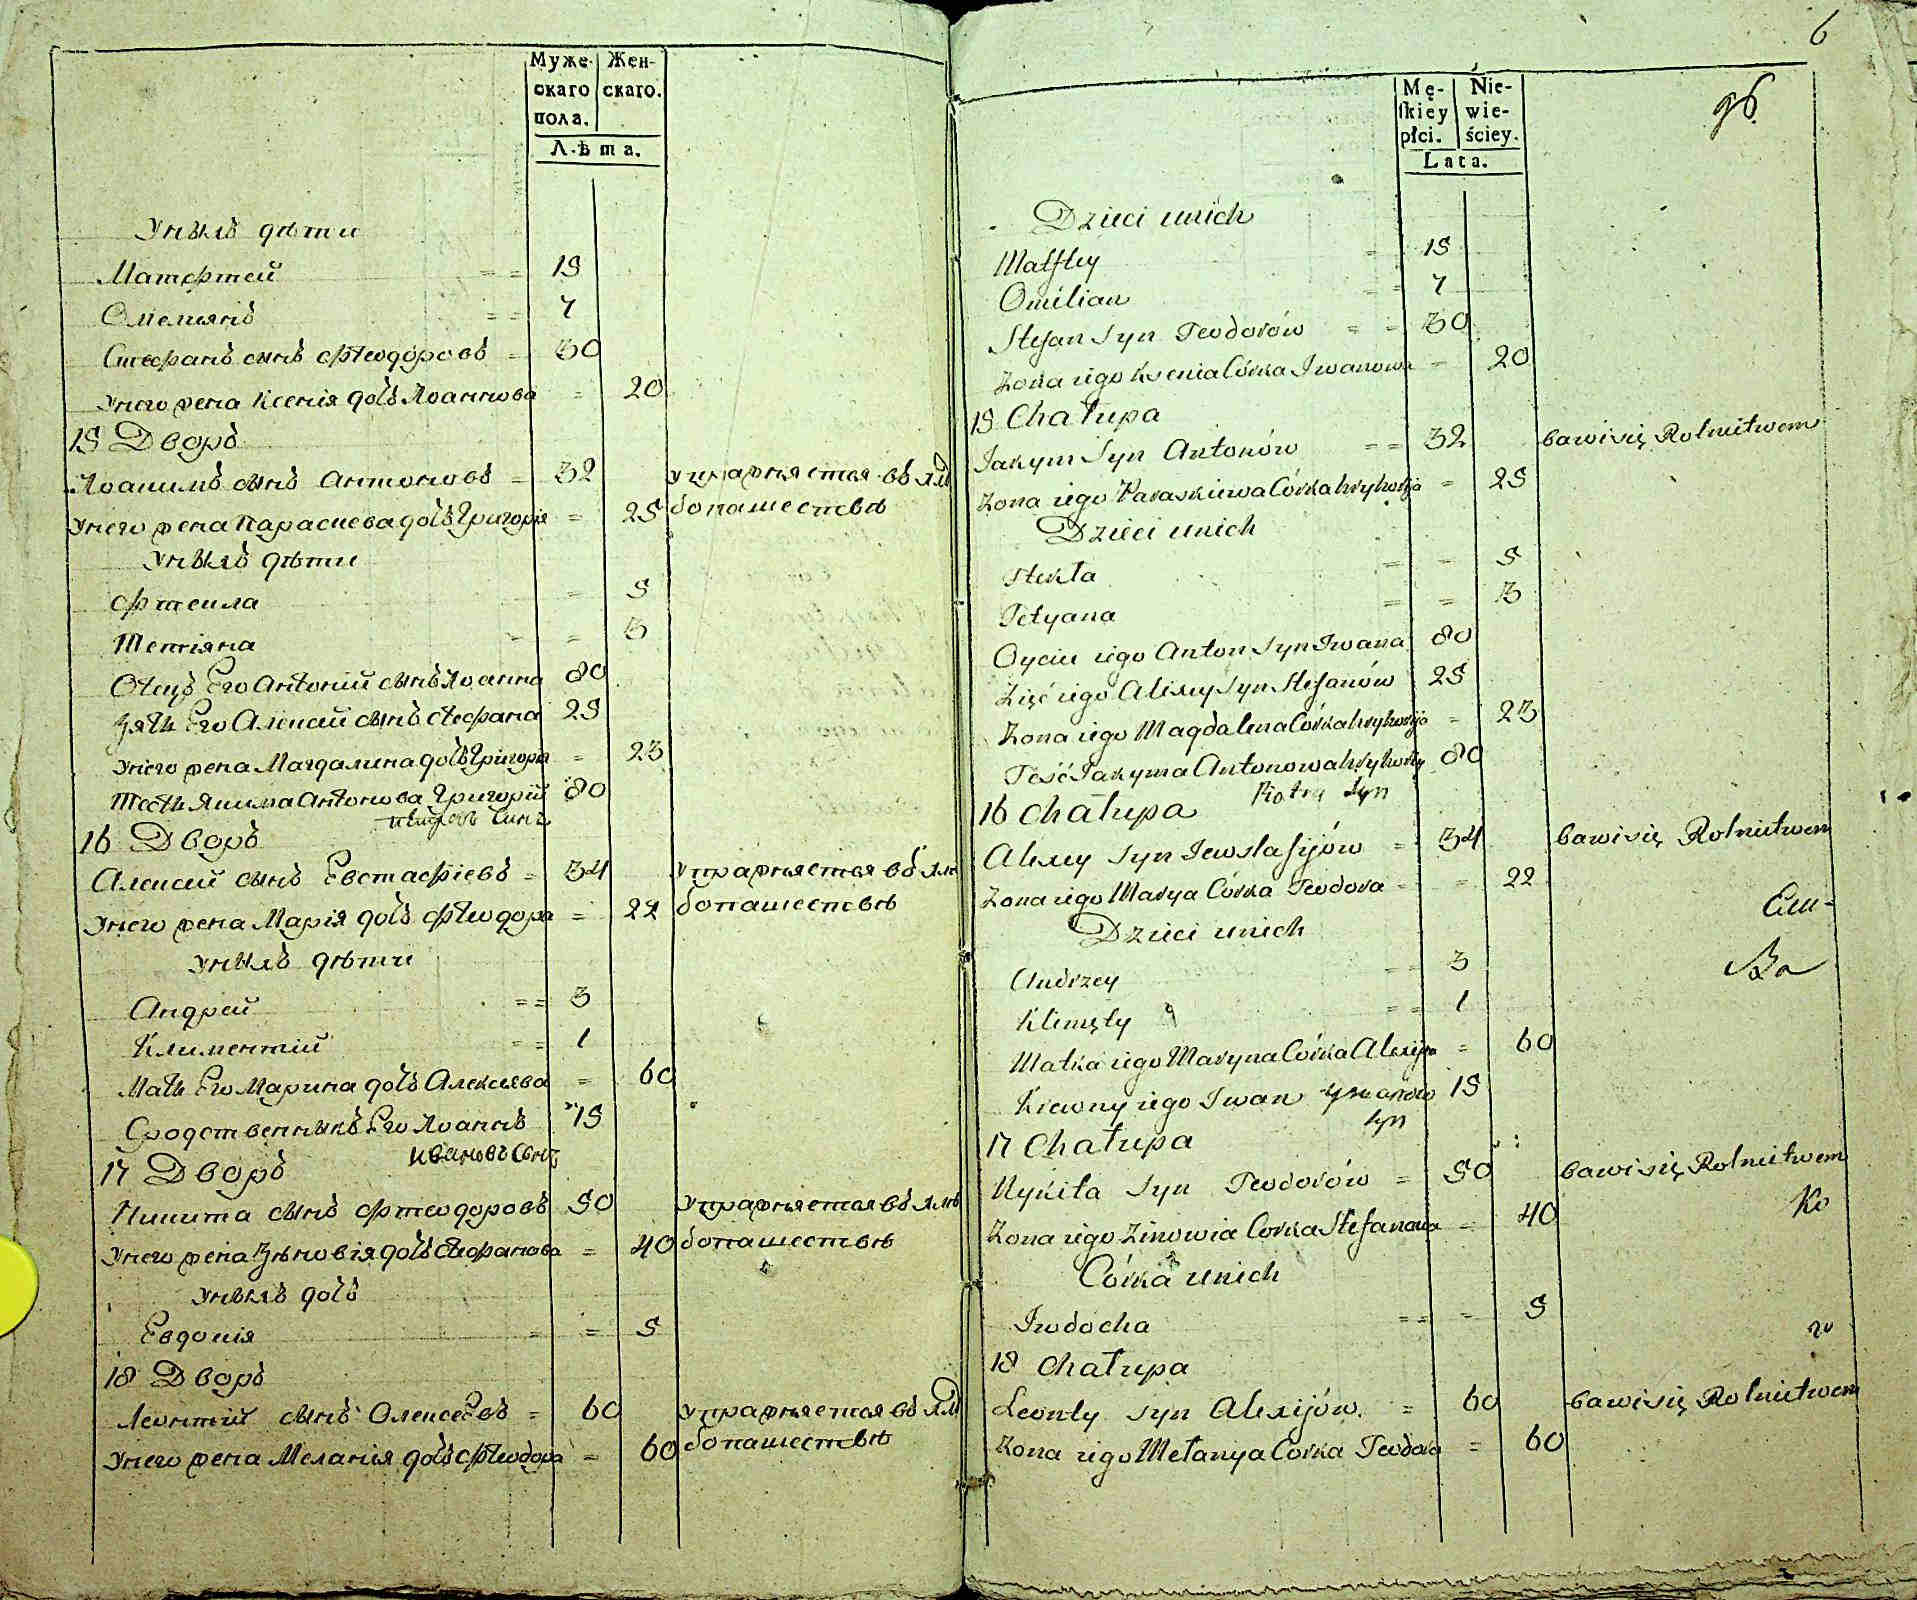 Муже- Жен-
скаго скаго.
пола.
Лѣта.
Унихъ дѣти
Матѳтей = = 15
Омелиянъ = = 7
Стефанъ сынъ Фтеодоровъ = 30
Унего жена Ксенія дочь Иоаннова = 20
15 Дворъ
Иоакимъ сынъ Антоновъ = 32 упражняется въ хлѣ
Унего жена Параскева дочь Григорія = 25 бопашествѣ
Унихъ дѣти
Фтекла = 5
Тетіяна = = 3
Отецъ Его Антоній сынъ Иоанна 80
Зять Его Алексей сынъ Стефана 25
Унего жена Магдалина дочь Григорія = 23
Тесть Якима Антонова Григорій 80
Петровъ Синъ
16 Дворъ
Алексей сынъ Евстафіевъ = 34 упражняется въ хлѣ
Унего жена Марія дочь Фтеодора = 22 бопашествѣ
Унихъ дѣти
Андрей = = 3
Климентій = = 1
Мать Его Марина дочь Алексѣева = 60
Сродственникъ Его Иоаннъ 15
Ивановъ Синъ
17 Дворъ
Никита сынъ Фтеодоровъ 50 упражняется въ хлѣ
Унего жена Зѣновія дочь Стефанова = 40 бопашествѣ
Унихъ дочь
Евдокія = = 5
18 Дворъ
Леонтій сынъ Олексеевъ = 60 упражняется въ хлѣ
Унего жена Меланія дочь Фтеодора = 60 бопашествѣ
6
Mę- Nie-
skiey wie-
płci. ściey.
Lata.
Dzieci unich
Matftey = 15
Omilian = = 7
Stefan Syn Teodorów = = 30
Żona iego Ksenia Córka Iwanowa = 20
15 Chałupa
Jakym Syn Antonów = = 32 bawi się Rolnictwem
Żona iego Paraskiewa Córka Hryhorija = 25
Dzieci unich
Ftekła = = 5
Tetyana = = 3
Oyciec iego Anton Syn Iwana 80
Zięć iego Alexey Syn Stefanów 25
Żona iego Magdalena Córka Hryhorija = 23
Teść Jakyma Antonowa Hryhory 80
Piotra Syn
16 Chałupa
Alexey Syn Jewstafijów = 34 bawi się Rolnictwem
Żona iego Marya Córka Teodora = = 22
Dzieci unich
Andrzey = = 3
Klimęty = = 1
Matka iego Maryna Córka Alexija = 60
Krewny iego Iwan Iwanów 15
syn
17 Chałupa
Nykita Syn Teodorów = 50 bawi się Rolnictwem
Żona iego Zinowia Corka Stefanowa = 40
Córka unich
Iwdocha = = = 5
18 Chałupa
Leonty Syn Alexijów = 60 bawi się Rolnictwem
Żona iego Mełanya Córka Teodora = 60